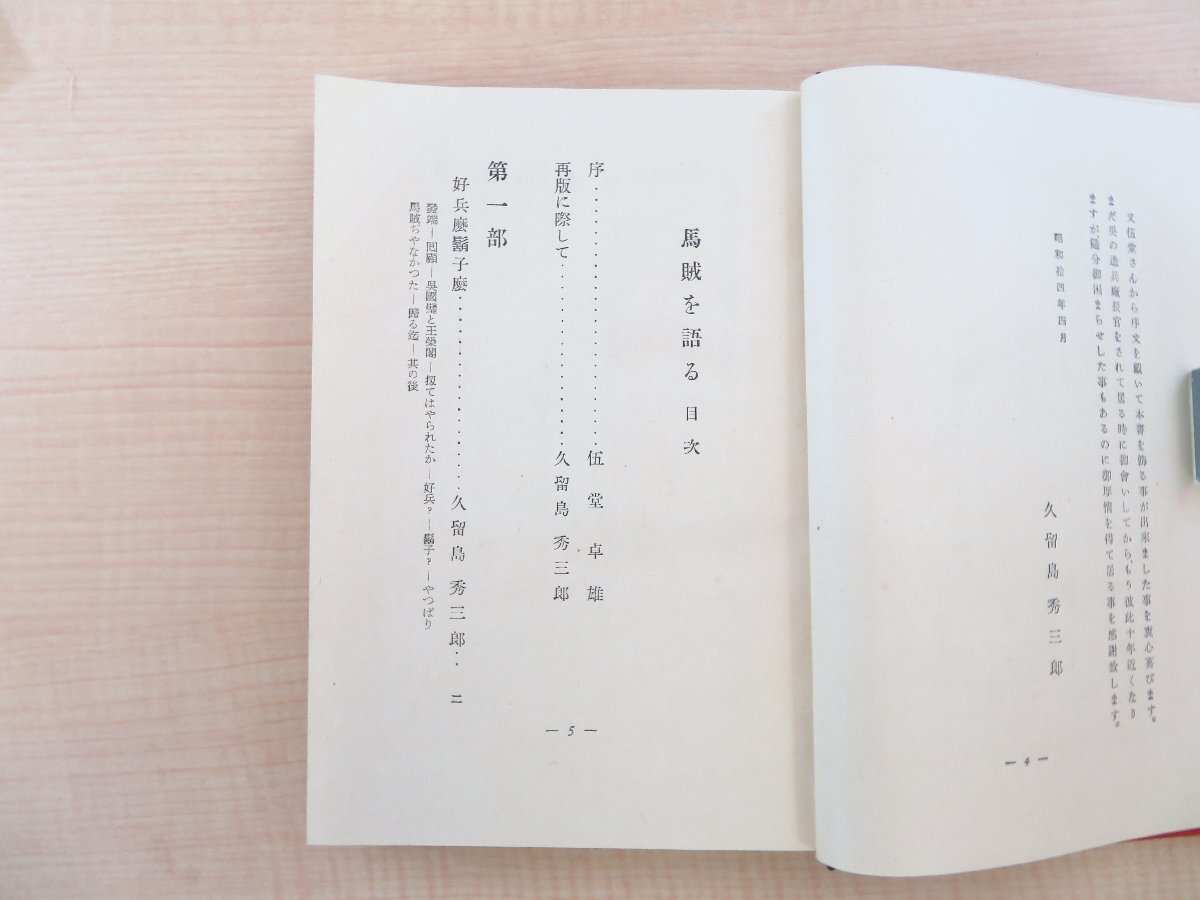 又伍堂さんから序文を戴いて本書を飾る事が出來ました事を衷心喜びます。
まだ吳の造兵廠長官をされて居る時に御會いしてからもう彼此十年近くなり
ますが隨分御困まらせした事もあるのに御厚情を得て居る事を感謝致します。
昭和拾四年四月
久留島秀三郎
— 4 —
馬賊を語る 目次
序 伍堂卓雄
再版に際して 久留島秀三郎
第一部
好兵麽鬍子麽 久留島秀三郎 二
發端—回顧—吳國璧と王榮閣—扨てはやられたか—好兵?—鬍子?—やつぱり
馬賊ぢやなかつた—歸る迄—其の後
— 5 —